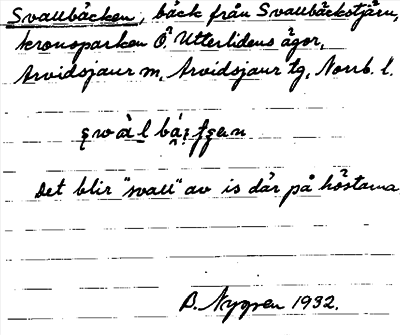 Svallbäcken, bäck från Svallbäckstjärn,
kronoparken Ö. Utterlidens ägor,
Arvidsjaur sn, Arvidsjaur tg, Norrb. l.
Det blir "svall" av is där på höstarna
B. Nygren 1932.